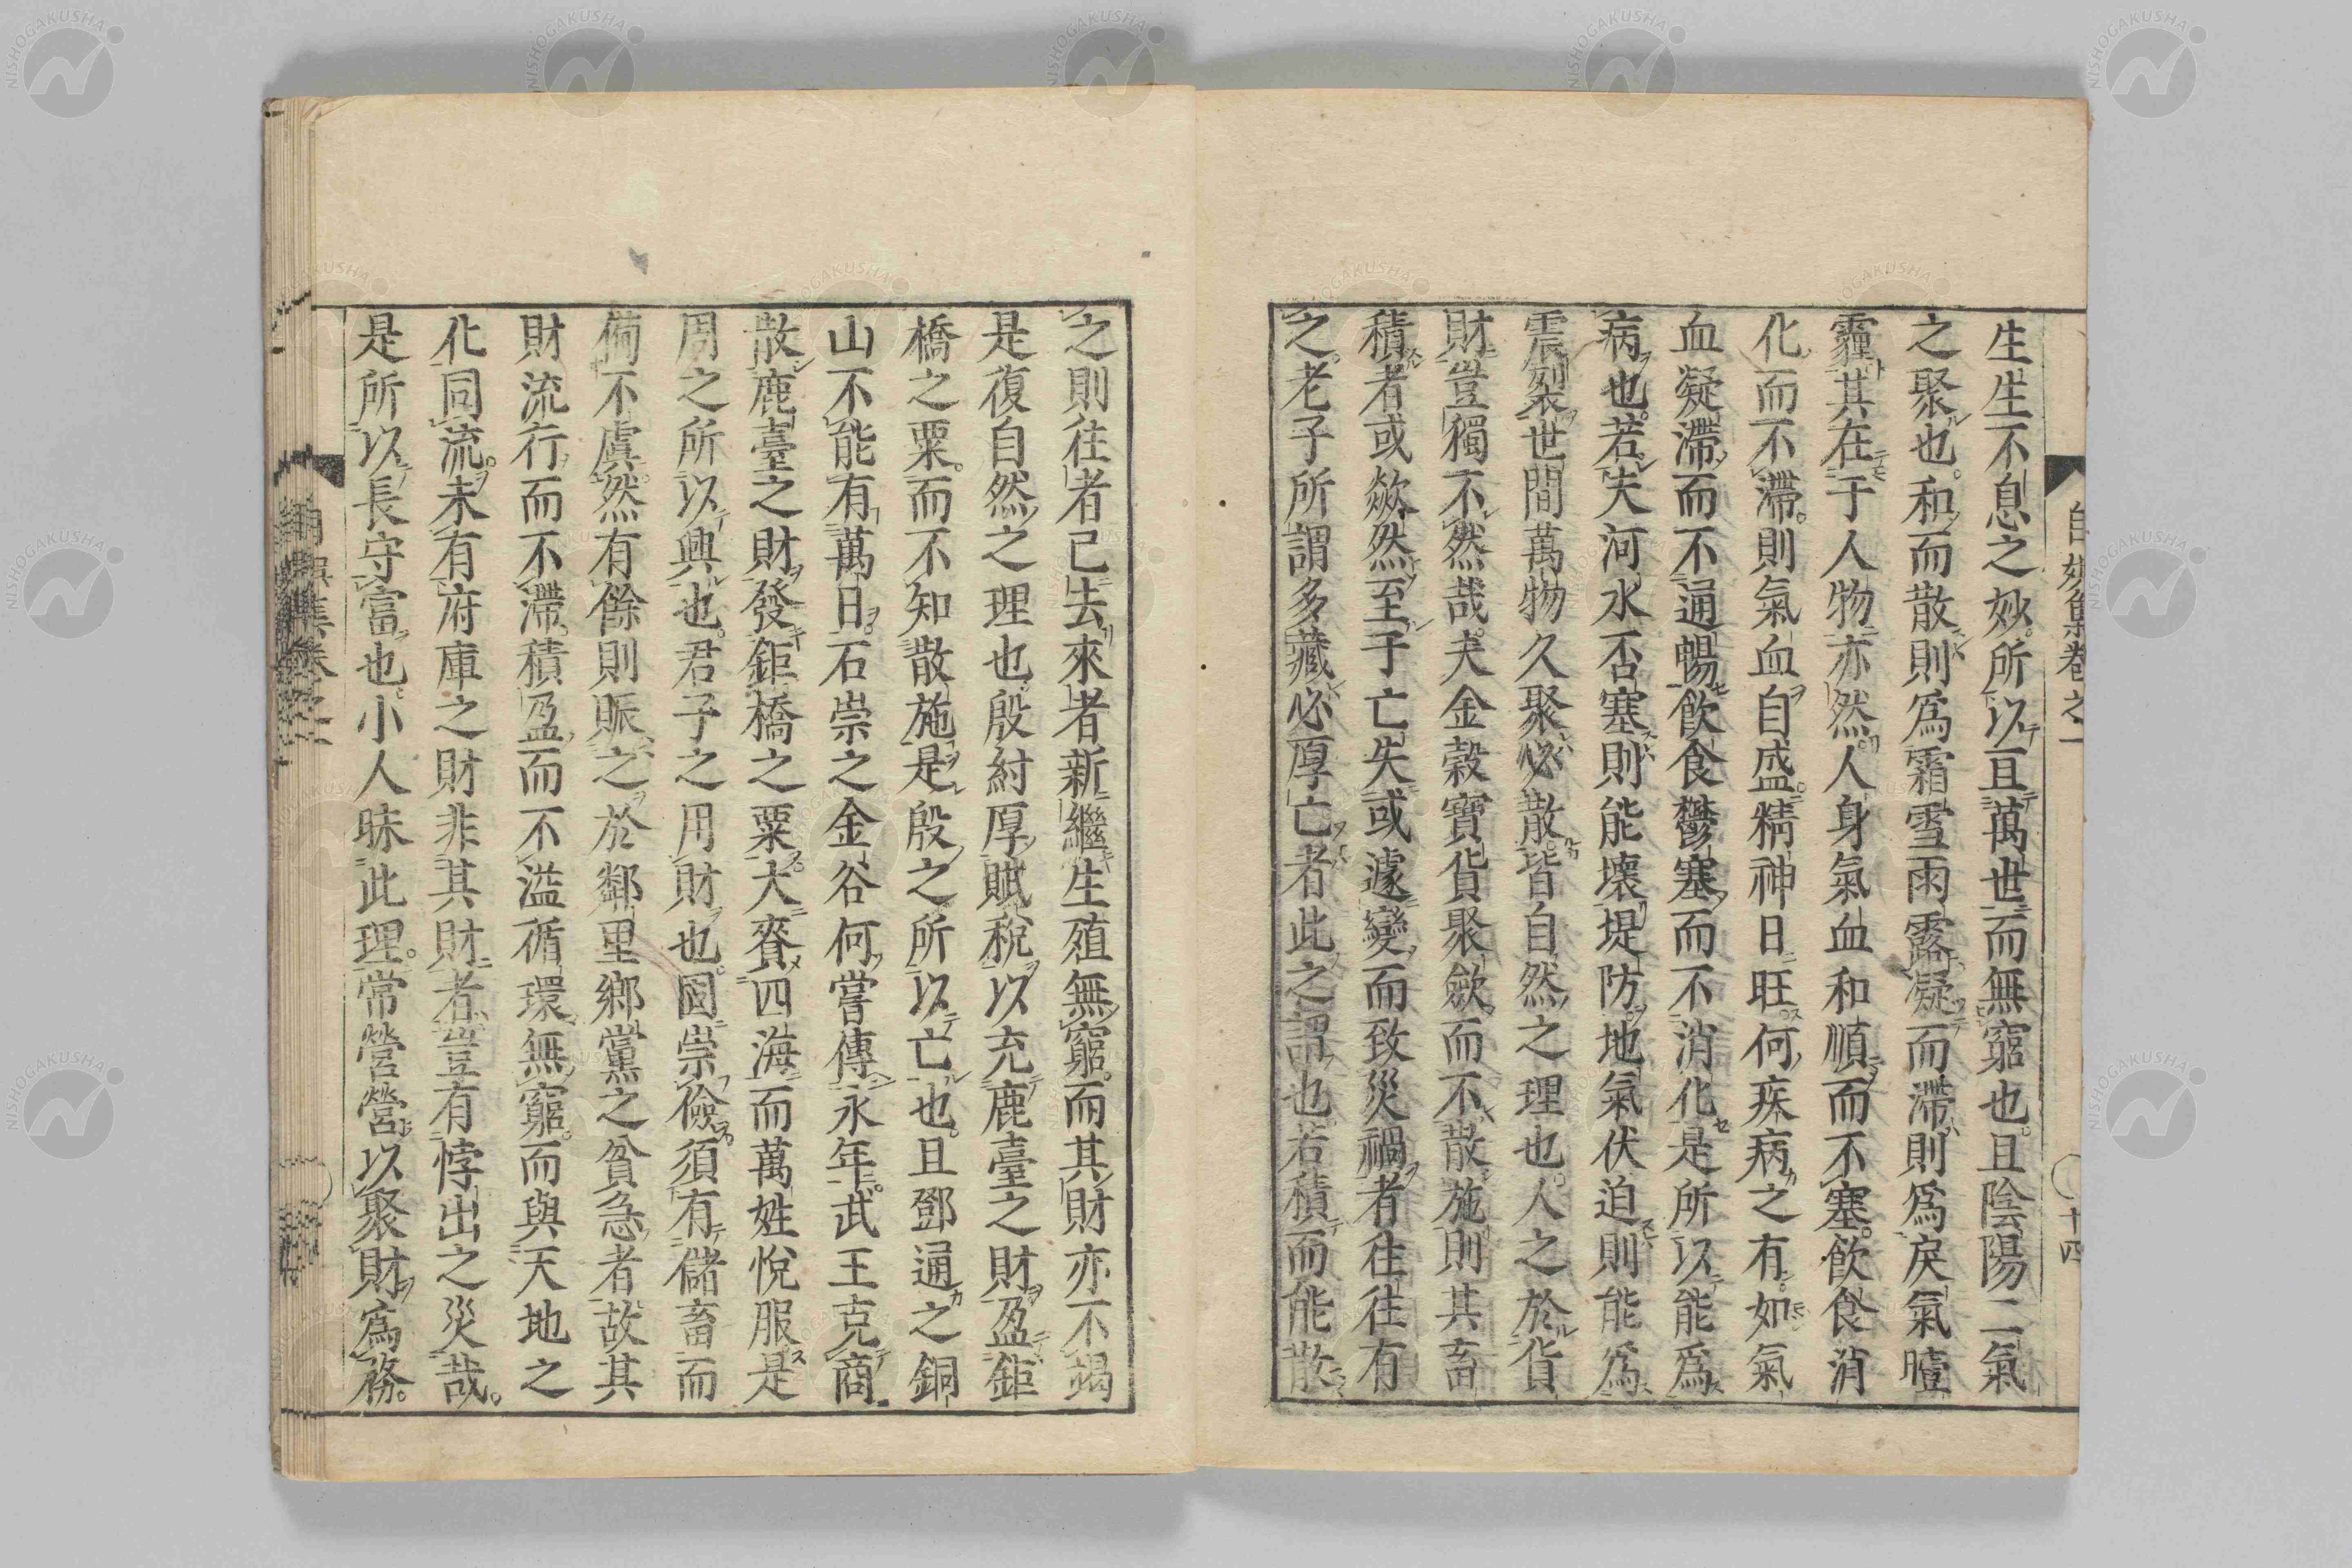 生生不息之妙所以且萬世而無窮也且陰陽二氣
之聚也和而散則爲霜雪雨露凝而滯則爲戾氣曀
霾其在于人物亦然人身氣血和順而不塞飮食消
化而不滯則氣血自盛精神日旺何疾病之有如氣
血凝滯而不通暢飮食鬱塞而不消化是所以能爲
病也若夫河水否塞則能壞堤防地氣伏迫則能爲
震裂世間萬物久聚必散皆自然之理也人之於貨
財豈獨不然哉夫金穀寶貨聚歛而不散施則其畜
積者或歘然至于亡失或遽變而致災禍者往往有
之老子所謂多藏必厚亡者此之謂也若積而能散
之則往者已去來者新繼生殖無窮而其財亦不竭
是復自然之理也殷紂厚賦稅以充鹿臺之財盈鉅
橋之粟而不知散施是殷之所以亡也且鄧通之銅
山不能有萬日石崇之金谷何嘗傳永年武王克商
散鹿臺之財發鉅橋之粟大賚四海而萬姓悅服是
周之所以興也君子之用財也固崇儉須有儲畜而
備不虞然有餘則賑之於鄰里鄕黨之貧急者故其
財流行而不滯積盈而不溢循環無窮而與天地之
化同流未有府庫之財非其財者豈有悖出之災哉
是所以長守富也小人昧此理常營營以聚財爲務
自娛集卷之一
十四
NISHOGAKUSHA